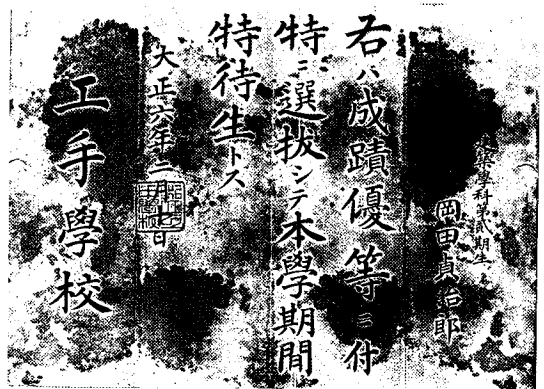 築學科第貳期生
岡田貞治郎
右ハ成蹟優等ニ付
特ニ選拔シテ本學期間
特待生トス
大正六年二月七日
工手學校